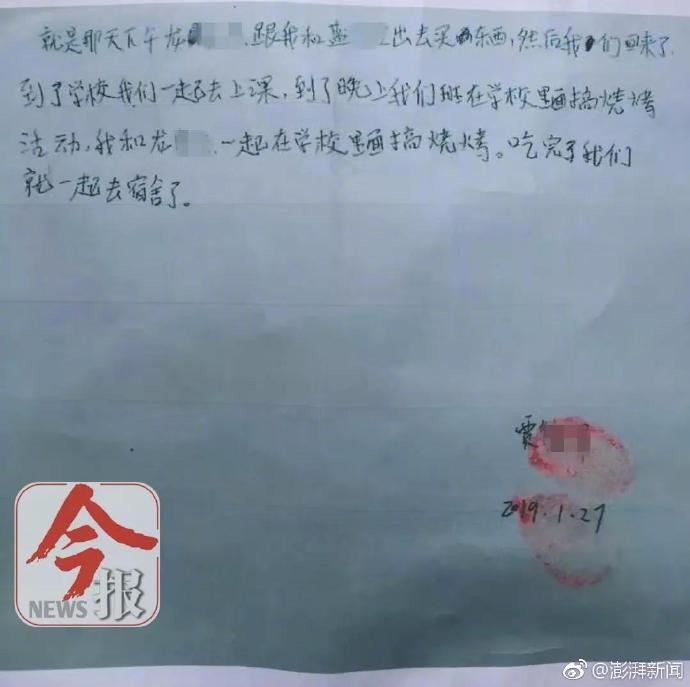 就是那天下午龙 、跟我和蓝 出去买东西,然后我们回来了
到了学校我们一起去上课,到了晚上我们班在学校里面搞烧烤
活动,我和龙 一起在学校里面搞烧烤。吃完了我们
就一起去宿舍了。
贾
2019.1.27
今报
NEWS
@澎湃新闻